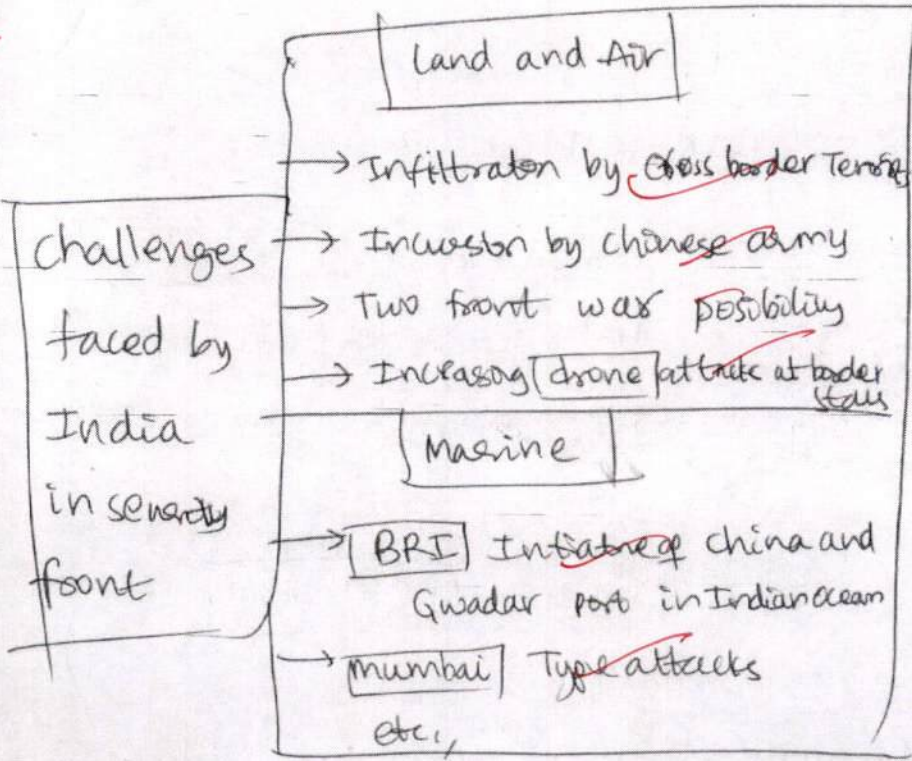 Challenges
faced by
India
in security
front
Land and Air
→ Infiltraton by cross border Terrorists
→ Incursion by chinese army
→ Two front war posibility
→ Increasing drone attack at border
Marine
→ BRI Intiative of China and
Gwadar port in Indian Ocean
→ mumbai Type attacks
etc.,